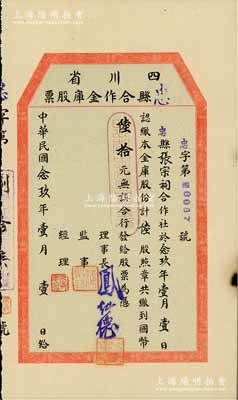 上海阳明拍卖
四川省
忠縣合作金庫股票
忠字第 0037 號
忠縣張宗祠合作社於念玖年壹月壹日
認繳本金庫股份計陸股照章共繳到國幣
陸拾元無訛合行發給股票為憑
理事長
監事
經理
中華民國念玖年壹月壹日給
字第
號